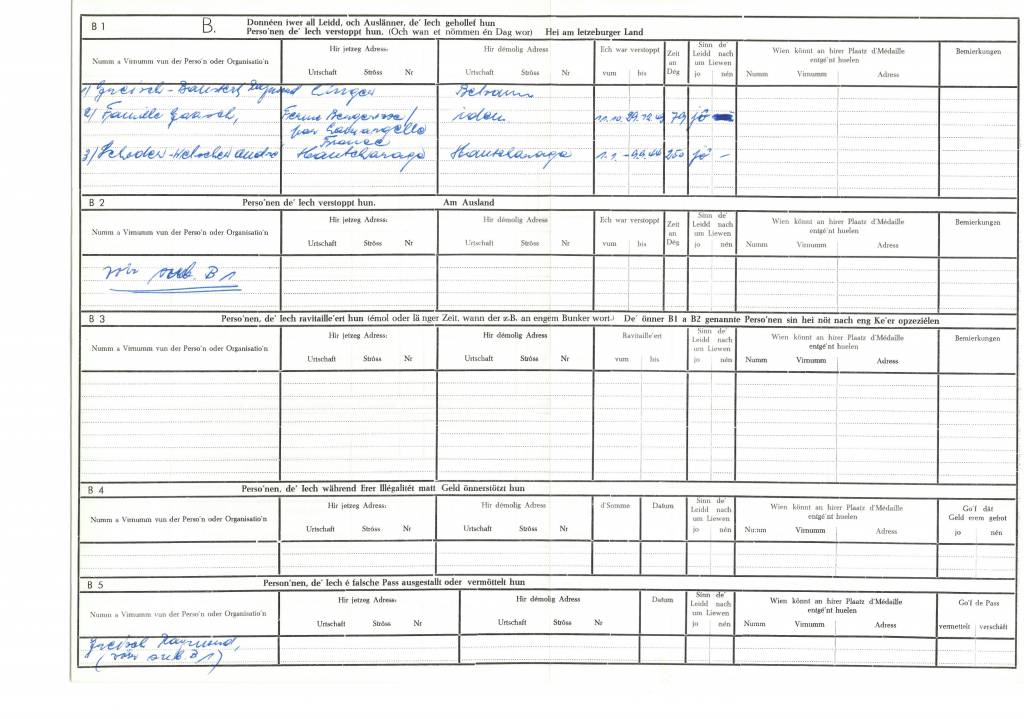 B 1 B. Donnéen iwer all Leidd, och Auslänner, de' Iech gehollef hun
Perso'nen de' Iech verstoppt hun. (Och wan et nömmen én Dag wor) Hei am letzeburger Land
Numm a Virnumm vun der Perso'n oder Organisatio'n
Hir jetzeg Adress:
Urtschaft Ströss Nr
Hir démolig Adress
Urtschaft Ströss Nr
Ech war verstoppt
vum bis
Zeit an Dég
Sinn de' Leidd nach um Liewen
jo nén
Wien könnt an hirer Plaatz d'Médaille entgé'nt huelen
Numm Virnumm Adress
Bemierkungen
1) Greisch - Linger
2) Famille iden 79 jô
par
France
3) Hautcharage Hautcharage 1.1. - 9.9.44 250 jô -
B 2 Perso'nen de' Iech verstoppt hun. Am Ausland
Numm a Virnumm vun der Perso'n oder Organisatio'n
Hir jetzeg Adress:
Urtschaft Ströss Nr
Hir démolig Adress
Urtschaft Ströss Nr
Ech war verstoppt
vum bis
Zeit an Dég
Sinn de' Leidd nach um Liewen
jo nén
Wien könnt an hirer Plaatz d'Médaille entgé'nt huelen
Numm Virnumm Adress
Bemierkungen
voir sub. B 1
B 3 Perso'nen, de' Iech ravitaille'ert hun (émol oder lä nger Zeit, wann der z.B. an engem Bunker wort.) De' önner B1 a B2 genannte Perso'nen sin hei nöt nach eng Ke'er opzeziélen
Numm a Virnumm vun der Perso'n oder Organisatio'n
Hir jetzeg Adress:
Urtschaft Ströss Nr
Hir démolig Adress
Urtschaft Ströss Nr
Ravitaille'ert
vum bis
Sinn de' Leidd nach um Liewen
jo nén
Wien könnt an hirer Plaatz d'Médaille entgé'nt huelen
Numm Virnumm Adress
Bemierkungen
B 4 Perso'nen, de' Iech während Erer Illégalitét matt Geld önnerstötzt hun
Numm a Virnumm vun der Perso'n oder Organisatio'n
Hir jetzeg Adress:
Urtschaft Ströss Nr
Hir démolig Adress
Urtschaft Ströss Nr
d'Somme
Datum
Sinn de' Leidd nach um Liewen
jo nén
Wien könnt an hirer Plaatz d'Médaille entgé'nt huelen
Numm Virnumm Adress
Go'f dât Geld erem gefrot
jo nén
B 5 Person'nen, de' Iech é falsche Pass ausgestallt oder vermöttelt hun
Numm a Virnumm vun der Perso'n oder Organisatio'n
Hir jetzeg Adress:
Urtschaft Ströss Nr
Hir démolig Adress
Urtschaft Ströss Nr
Datum
Sinn de' Leidd nach um Liewen
jo nén
Wien könnt an hirer Plaatz d'Médaille entgé'nt huelen
Numm Virnumm Adress
Go'f de Pass
vermettelt verschâft
Greisch Raymund,
(voir sub B 1)